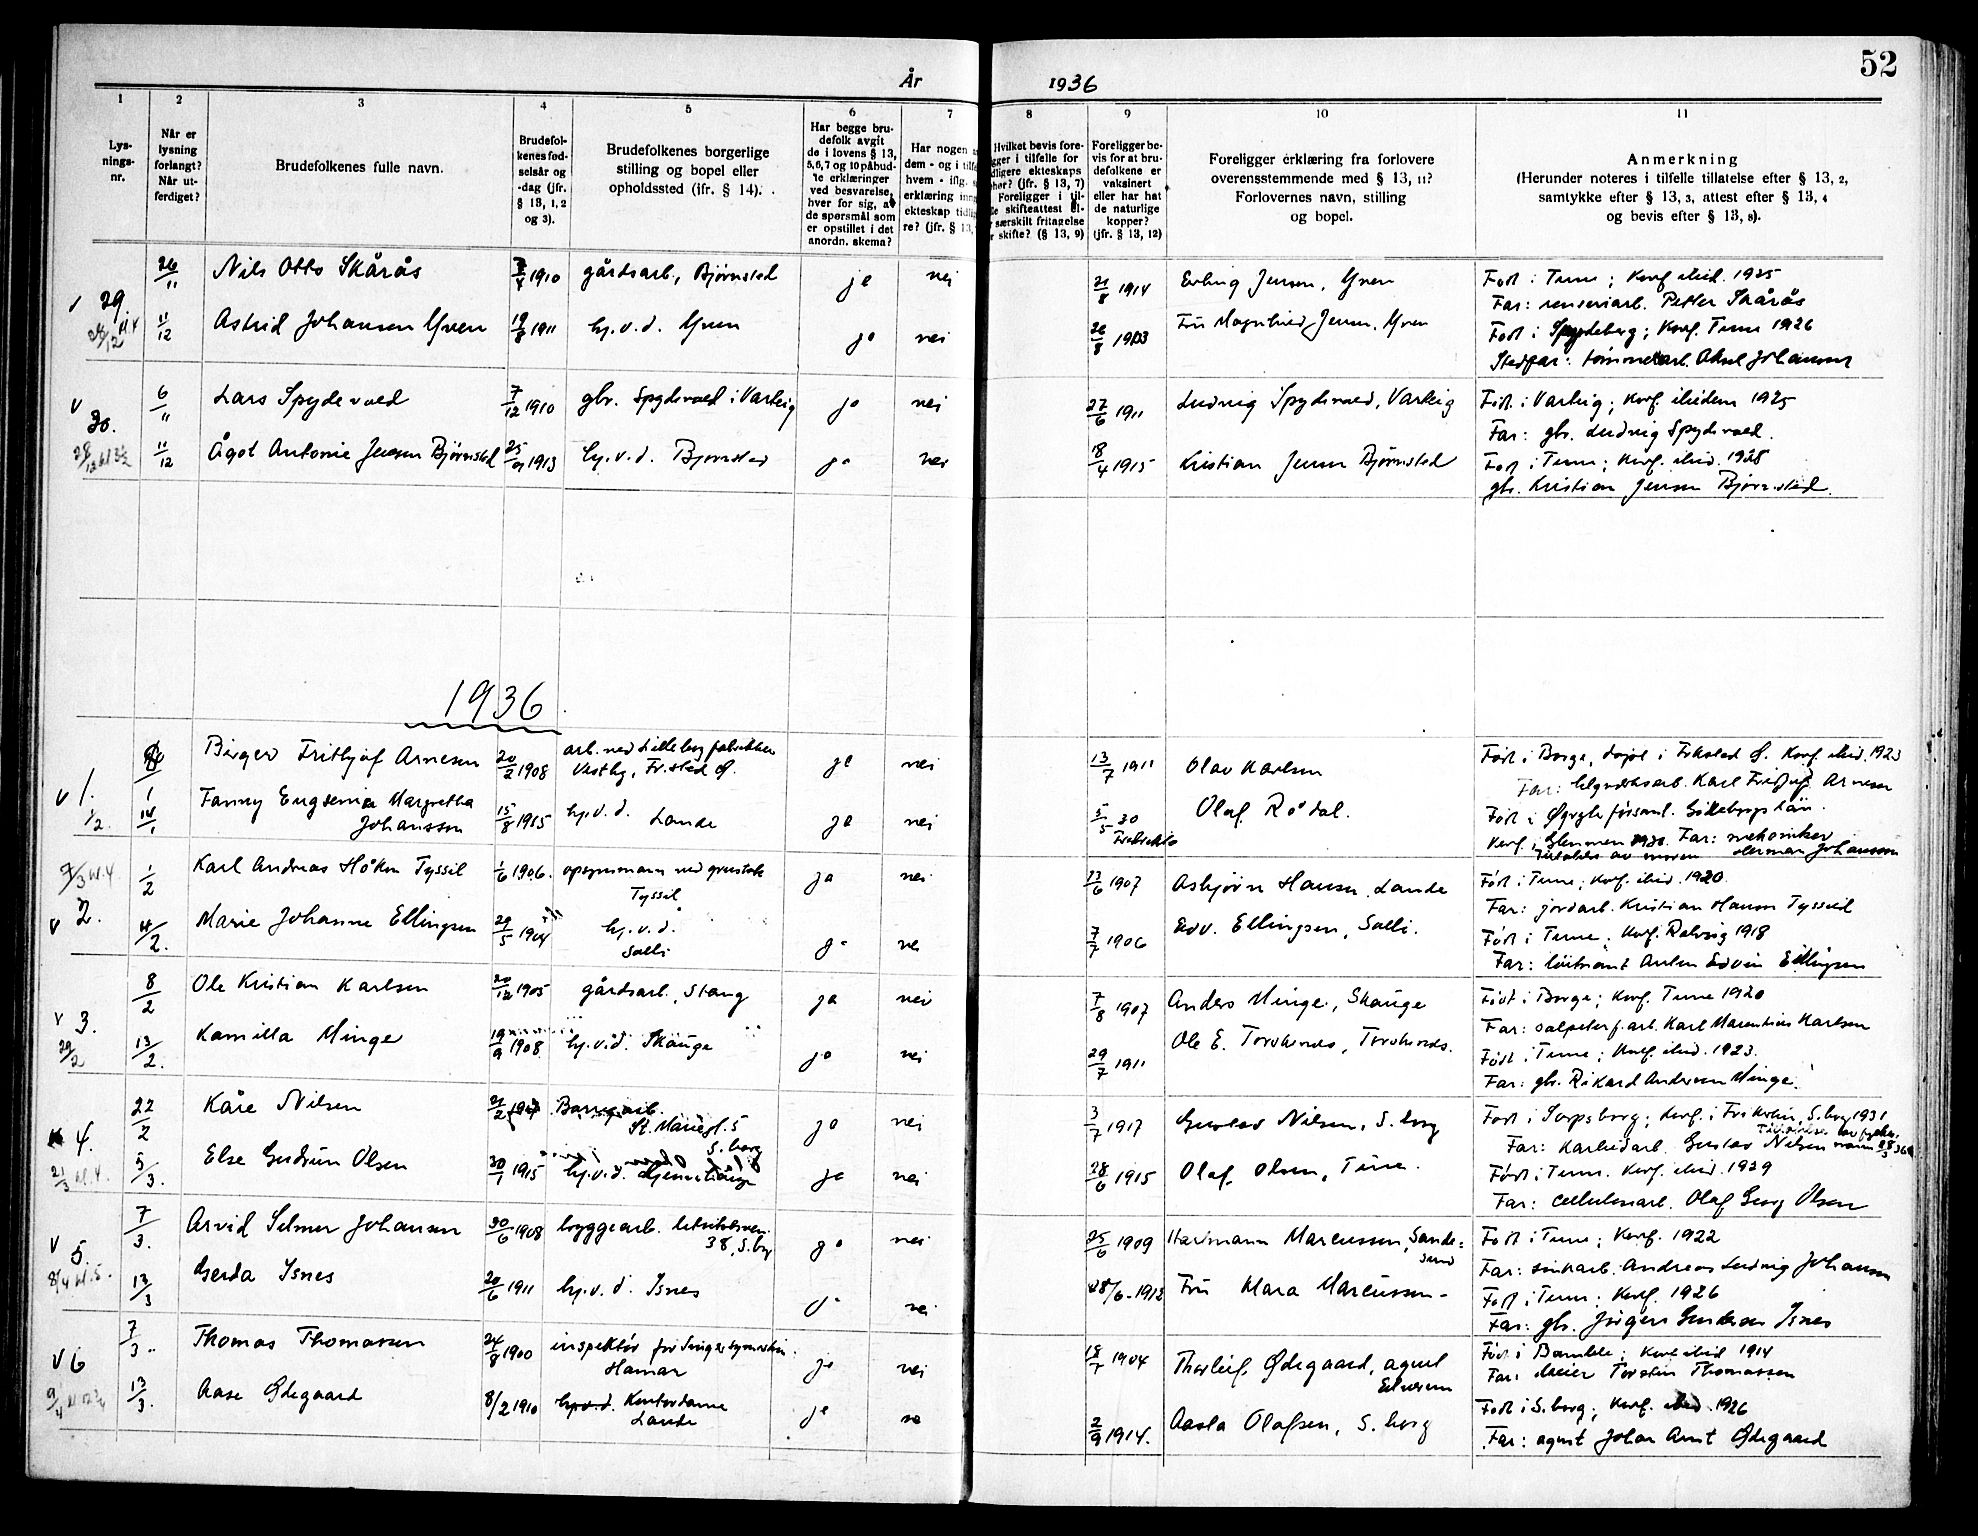 52
År 1936
1 2 3 4 5 6 7 8 9 10 11
Lys-
nings-
nr.
Når er
lysning
forlangt?
Når ut-
ferdiget?
Brudefolkenes fulle navn.
Brudefol-
kenes fød-
selsår og
-dag (jfr.
§ 13, 1, 2
og 3).
Brudefolkenes borgerlige
stilling og bopel eller
opholdssted (ifr. § 14).
Har begge bru-
defolk avgit
de i lovens § 13,
5, 6, 7 og 10 påbud-
te erklæringer
ved besvarelse,
hver for sig, av
de spørsmål som
er opstillet i det
anordn. skema?
Har nogen
dem - og i
hvem - iflg.
erklæring
ekteskap
re? (jfr. § 13,
Hvilket bevis fore-
ligger i tilfelle for
ekteskaps
(jfr. § 13, 7)
Foreligger i til-
skifteattest el-
særskilt fritagelse
skifte? (§ 13, 9)
Foreligger be-
vis for at bru-
defolkene er
vaksinert
eller har hat
de naturlige
kopper?
(jfr. § 13, 12)
Foreligger erklæring fra forlovere
overensstemmende med § 13, 11?
Forlovernes navn, stilling
og bopel.
Anmerkning
(Herunder noteres i tilfelle tillatelse efter § 13, 2,
samtykke efter § 13, 3, attest efter § 13, 4
og bevis efter § 13, 8).
29 26/11 Nils Otto Skårås 1910 gårdsarb., Bjørnstad ja nei 21/8 1914 Erling Jensen, Yven Født i Tune; Konf. ibid. 1925
Far: renseriarb. Petter Skårås
11/12 Astrid Johansen Yven 19/8 1911 hj.v.d. Yven ja nei 26/8 1933 Fru Magnhild Jensen, Yven Født i Spydeberg; Konf. Tune 1926
Stedfar: tømmerarb. Aksel Johansen
30. 6/11 Lars Spydevold 7/12 1910 gbr. Spydevold i Varteig ja nei 27/6 1911 Ludvig Spydevold, Varteig Født i Varteig; Konf. ibidem 1925
Far: gbr. Ludvig Spydevold.
11/12 Ågot Antonie Jensen Bjørnstad 1913 hj.v.d. Bjørnstad ja nei 18/4 1915 Kristian Jensen Bjørnstad Født i Tune; Konf. ibid. 1928
gbr. Kristian Jensen Bjørnstad.
1936
1. Birger Frithjof Arnesen 20/2 1908 arb. ved Lilleborg fabrikker
Vestby, Fr.stad Ø. ja nei 13/7 1911 Olav Karlsen Født i Borge, døpt i Frkstad Ø. Konf. ibid. 1923
Far: Karl Fridjof Arnesen
14/1 Fanny Eugenia Margretha
Johansson 15/8 1915 hj.v.d. Lande ja nei 5/5 30 Olaf Rødal. Født i Øgryte församl. Göteborgs län.
Konf. i Glemmen 1930. Far: mekaniker
Herman Johansson
2. 1/2 Karl Andreas Håkon Tyssil 1/6 1906. opsynsmann ved grustak
Tyssil ja nei 13/6 1907 Asbjørn Hansen, Lande Født i Tune; Konf. ibid. 1920.
Far: jordarb. Kristian Hansen Tyssil
4/2. Marie Johanne Ellingsen 29/5 1904 hj.v.d.
Solli 7/7 1906 Edv. Ellingsen, Solli. Født i Tune; Konf. Rolvsøy 1918
Far: løitnant Anton Edvin Ellingsen
3. 29/2 8/2 Ole Kristian Karlsen 20/12 1905 gårdsarb., Stang ja nei 7/8 1907 Anders Minge, Skauge Født i Borge; Konf. Tune 1920
Far: salpeterf.arb. Karl Marentius Karlsen
13/2. Kamilla Minge 19/9 1908 hj.v.d. Skauge ja nei 29/7 1911 Ole E. Født i Tune; Konf. ibid. 1923.
Far: gbr. Rikard Andersen Minge.
4. 22/2 Kåre Nilsen St. Mariegt. 5
S.borg ja nei 3/7 1917 Gustav Nilsen, S.borg Født i Sarpsborg; Konf. i Frikirken, S.borg 1931
Far: Karbidarb. Gustav Nilsen
5/3. Else Gudrun Olsen 30/1 1915 hj.v.d. ja nei 28/6 1915 Olaf Olsen, Tune. Født i Tune. Konf. ibid. 1929
Far: cellulosearb. Olaf Georg Olsen
5. 7/3. Arvid Selmer Johansen 30/6 1908 byggearb.
38, S.bg ja nei 25/6 1909 Harmann Marcussen, Sande-
sund Født i Tune; Konf. 1922
Far: sinkarb. Andreas Ludvig Johansen
13/3 Gerda Isnes 20/6 1911 hj.v.d. Isnes nei 28/6-1912 Fru Mara Marcussen- Født i Tune; Konf. 1926
Far: gbr. Jørgen Gundersen Isnes
6 7/3. Thomas Thomassen 24/8 1900 inspektør for Singer symaskin.
Hamar ja nei 18/7 1904 Thorleif Ødegaard, agent Født i Bamble; Konf. ibid 1914
Far: Meier Torstein Thomassen
13/3. Aase Ødegaard 8/2 1910 hj.v.d. Kontordame
Lande ja 2/9 1914. Aasta Olafsen, S.borg Født i S.borg; Konf. ibid. 1926
Far: agent Johan Arnt Ødegaard